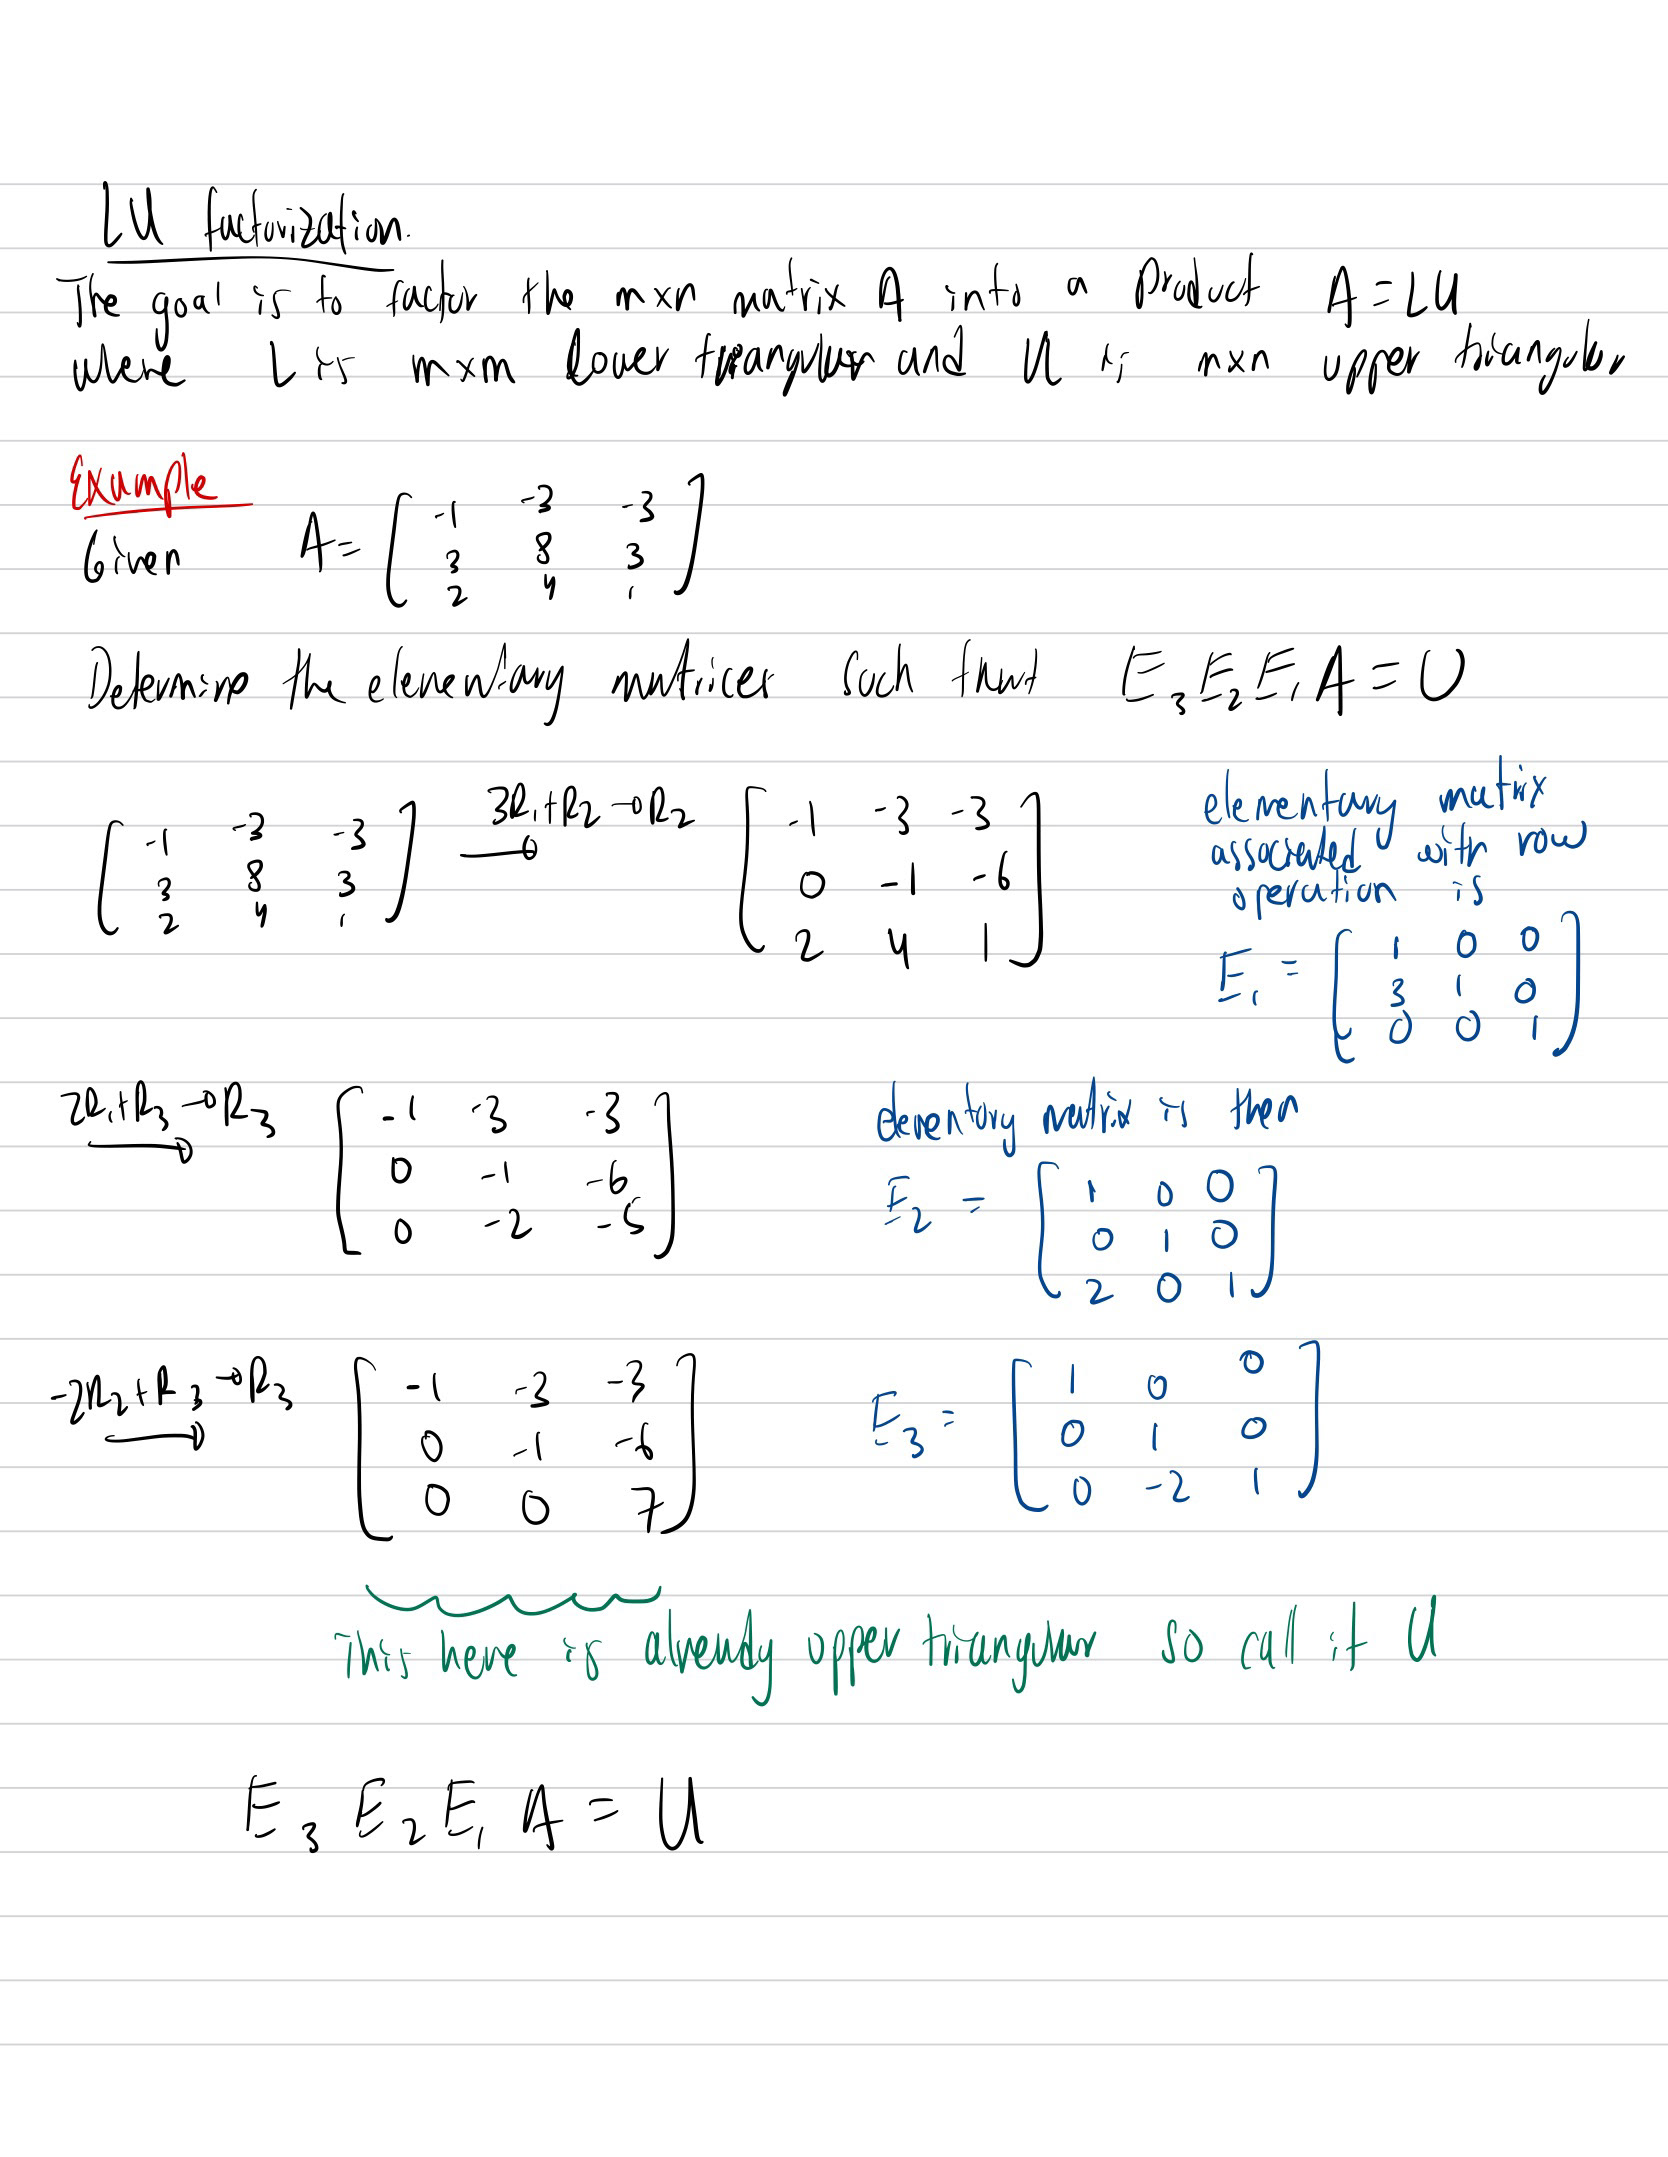 LU factorization.
The goal is to factor the mxn matrix A into a product A = LU
where L is mxm lower triangular and U is mxn upper triangular
Example
Given A = [ -1 -3 -3
3 8 3
2 4 1 ]
Determine the elementary matrices such that E₃E₂E₁A = U
[ -1 -3 -3
3 8 3
2 4 1 ]
3R₁+R₂→R₂
[ -1 -3 -3
0 -1 -6
2 4 1 ]
elementary matrix
associated with row
operation is
E₁ = [ 1 0 0
3 1 0
0 0 1 ]
2R₁+R₃→R₃
[ -1 -3 -3
0 -1 -6
0 -2 -5 ]
elementary matrix is then
E₂ = [ 1 0 0
0 1 0
2 0 1 ]
-2R₂+R₃→R₃
[ -1 -3 -3
0 -1 -6
0 0 7 ]
E₃ = [ 1 0 0
0 1 0
0 -2 1 ]
This here is already upper triangular so call it U
E₃ E₂ E₁ A = U